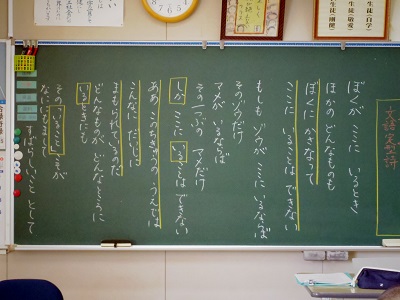 ぼくが ここに いるとき
ほかの どんなものも
ぼくに かさなって
ここに いることは できない
もしも ゾウが ここに いるならば
そのゾウだけ
マメが いるならば
その一つぶの マメだけ
しか ここに いることは できない
ああ このちきゅうの うえでは
こんなに だいじに
まもられているのだ
どんなものが どんなところに
いるときにも
その「いること」こそが
なににも まして
すばらしいこと として